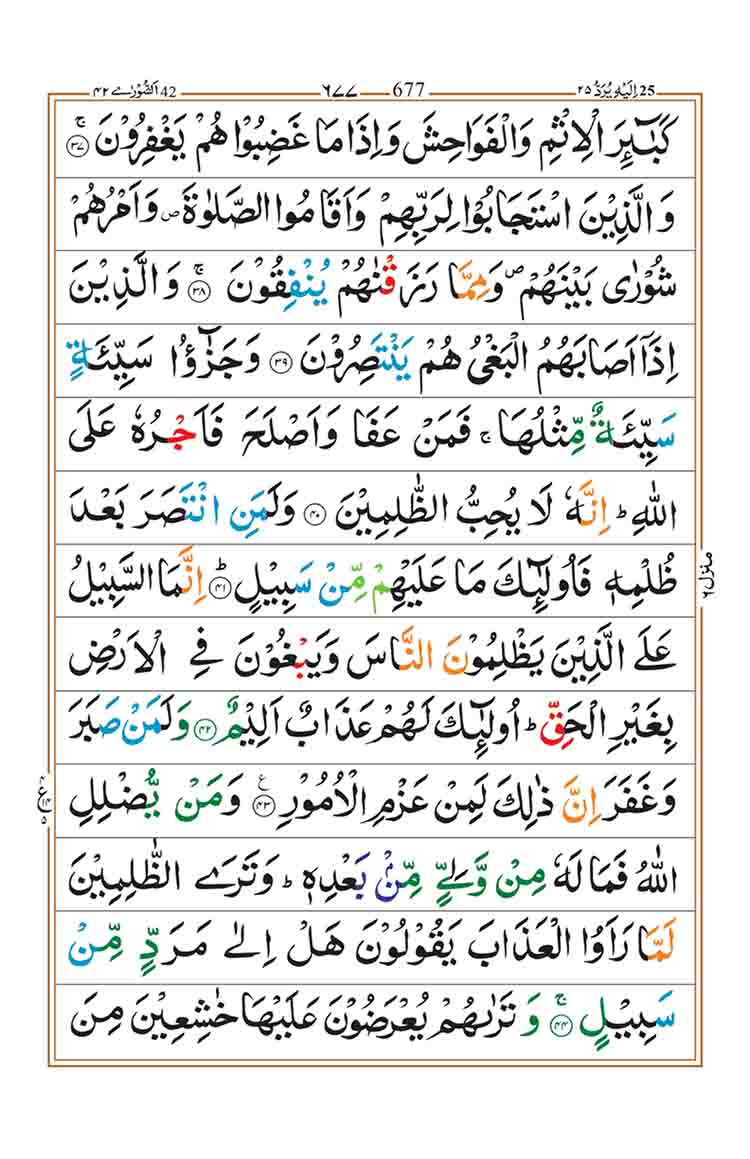 25 اِلَيْهِ يُرَدُّ ٢٥ — 677 — ٦٧٧ — 42 اَلشُّوْرٰى ٤٢
كَبٰٓئِرَ الْاِثْمِ وَالْفَوَاحِشَ وَاِذَا مَا غَضِبُوْا هُمْ يَغْفِرُوْنَ ۚ ﴿٣٧﴾
وَالَّذِيْنَ اسْتَجَابُوْا لِرَبِّهِمْ وَاَقَامُوا الصَّلٰوةَ ۖ وَاَمْرُهُمْ
شُوْرٰى بَيْنَهُمْ ۖ وَمِمَّا رَزَقْنٰهُمْ يُنْفِقُوْنَ ۚ ﴿٣٨﴾ وَالَّذِيْنَ
اِذَآ اَصَابَهُمُ الْبَغْىُ هُمْ يَنْتَصِرُوْنَ ﴿٣٩﴾ وَجَزٰٓؤُا سَيِّئَةٍ
سَيِّئَةٌ مِّثْلُهَا ۚ فَمَنْ عَفَا وَاَصْلَحَ فَاَجْرُهٗ عَلَى
اللّٰهِ ؕ اِنَّهٗ لَا يُحِبُّ الظّٰلِمِيْنَ ﴿٤٠﴾ وَلَمَنِ انْتَصَرَ بَعْدَ
ظُلْمِهٖ فَاُولٰٓئِكَ مَا عَلَيْهِمْ مِّنْ سَبِيْلٍ ؕ ﴿٤١﴾ اِنَّمَا السَّبِيْلُ
عَلَى الَّذِيْنَ يَظْلِمُوْنَ النَّاسَ وَيَبْغُوْنَ فِى الْاَرْضِ
بِغَيْرِ الْحَقِّ ؕ اُولٰٓئِكَ لَهُمْ عَذَابٌ اَلِيْمٌ ﴿٤٢﴾ وَلَمَنْ صَبَرَ
وَغَفَرَ اِنَّ ذٰلِكَ لَمِنْ عَزْمِ الْاُمُوْرِ ع ﴿٤٣﴾ وَمَنْ يُّضْلِلِ
اللّٰهُ فَمَا لَهٗ مِنْ وَّلِىٍّ مِّنْۢ بَعْدِهٖ ؕ وَتَرَى الظّٰلِمِيْنَ
لَمَّا رَاَوُا الْعَذَابَ يَقُوْلُوْنَ هَلْ اِلٰى مَرَدٍّ مِّنْ
سَبِيْلٍ ۚ ﴿٤٤﴾ وَتَرٰىهُمْ يُعْرَضُوْنَ عَلَيْهَا خٰشِعِيْنَ مِنَ
منزل ٦
٤ ع ١٤ ٥